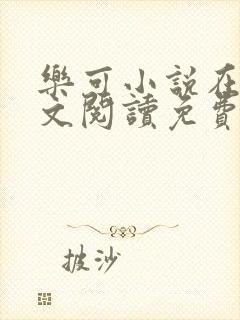 樂可小說在
文閱讀免費
披沙